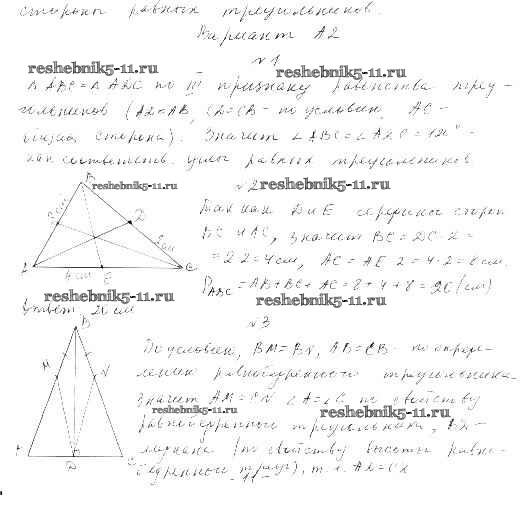 стороны равных треугольников.
Вариант А2
№1
reshebnik5-11.ru reshebnik5-11.ru
△ABC = △ADC по III признаку равенства треу-
гольников (AD=AB, CD=CB - по условию, AC -
общая сторона). Значит ∠ABC = ∠ADC = 120° -
как соответств. углы равных треугольников
B reshebnik5-11.ru
№2 reshebnik5-11.ru
Так как D и E середины сторон
BC и AC, значит BC = DC · 2 =
= 2·2 = 4 см, AC = AE · 2 = 4 · 2 = 8 см.
D
2 см
E C
4 см
P ABC = AB + BC + AC = 8 + 4 + 8 = 20 (см)
reshebnik5-11.ru reshebnik5-11.ru
Ответ 20 см
№3
B
По условию, BM = BN, AB = CB - по опреде-
M N
лению равнобедренного треугольника.
Значит AM = CN ∠A = ∠C по свойству
reshebnik5-11.ru reshebnik5-11.ru
равнобедренного треугольника, BD -
медиана (по свойству высоты равно-
D C
бедренного треуг), т.е. AD = CD
-11-